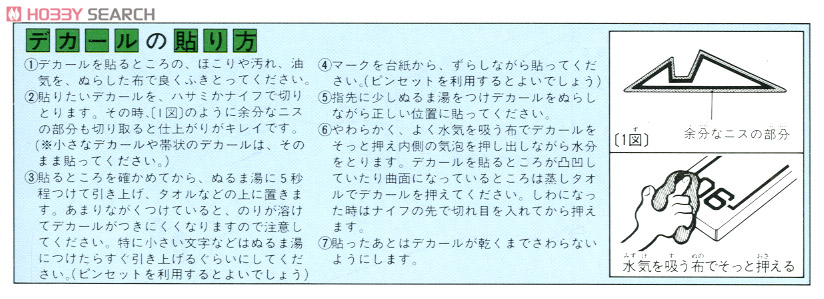 HOBBY SEARCH
デカールの貼り方
①デカールを貼るところの、ほこりや汚れ、油
気を、ぬらした布で良くふきとってください。
②貼りたいデカールを、ハサミかナイフで切り
とります。その時、〔1図〕のように余分なニス
の部分も切り取ると仕上がりがキレイです。
(※小さなデカールや帯状のデカールは、その
まま貼ってください。)
③貼るところを確かめてから、ぬるま湯に5秒
程つけて引き上げ、タオルなどの上に置きま
す。あまりながくつけていると、のりが溶け
てデカールがつきにくくなりますので注意し
てください。特に小さい文字などはぬるま湯
につけたらすぐ引き上げるぐらいにしてくだ
さい。(ピンセットを利用するとよいでしょう)
④マークを台紙から、ずらしながら貼ってくだ
さい。(ピンセットを利用するとよいでしょう)
⑤指先に少しぬるま湯をつけデカールをぬらし
ながら正しい位置に貼ってください。
⑥やわらかく、よく水気を吸う布でデカールを
そっと押え内側の気泡を押し出しながら水分
をとります。デカールを貼るところが凸凹し
ていたり曲面になっているところは蒸しタオ
ルでデカールを押えてください。しわになっ
た時はナイフの先で切れ目を入れてから押え
ます。
⑦貼ったあとはデカールが乾くまでさわらない
ようにします。
余分なニスの部分
〔1図〕
06
水気を吸う布でそっと押える